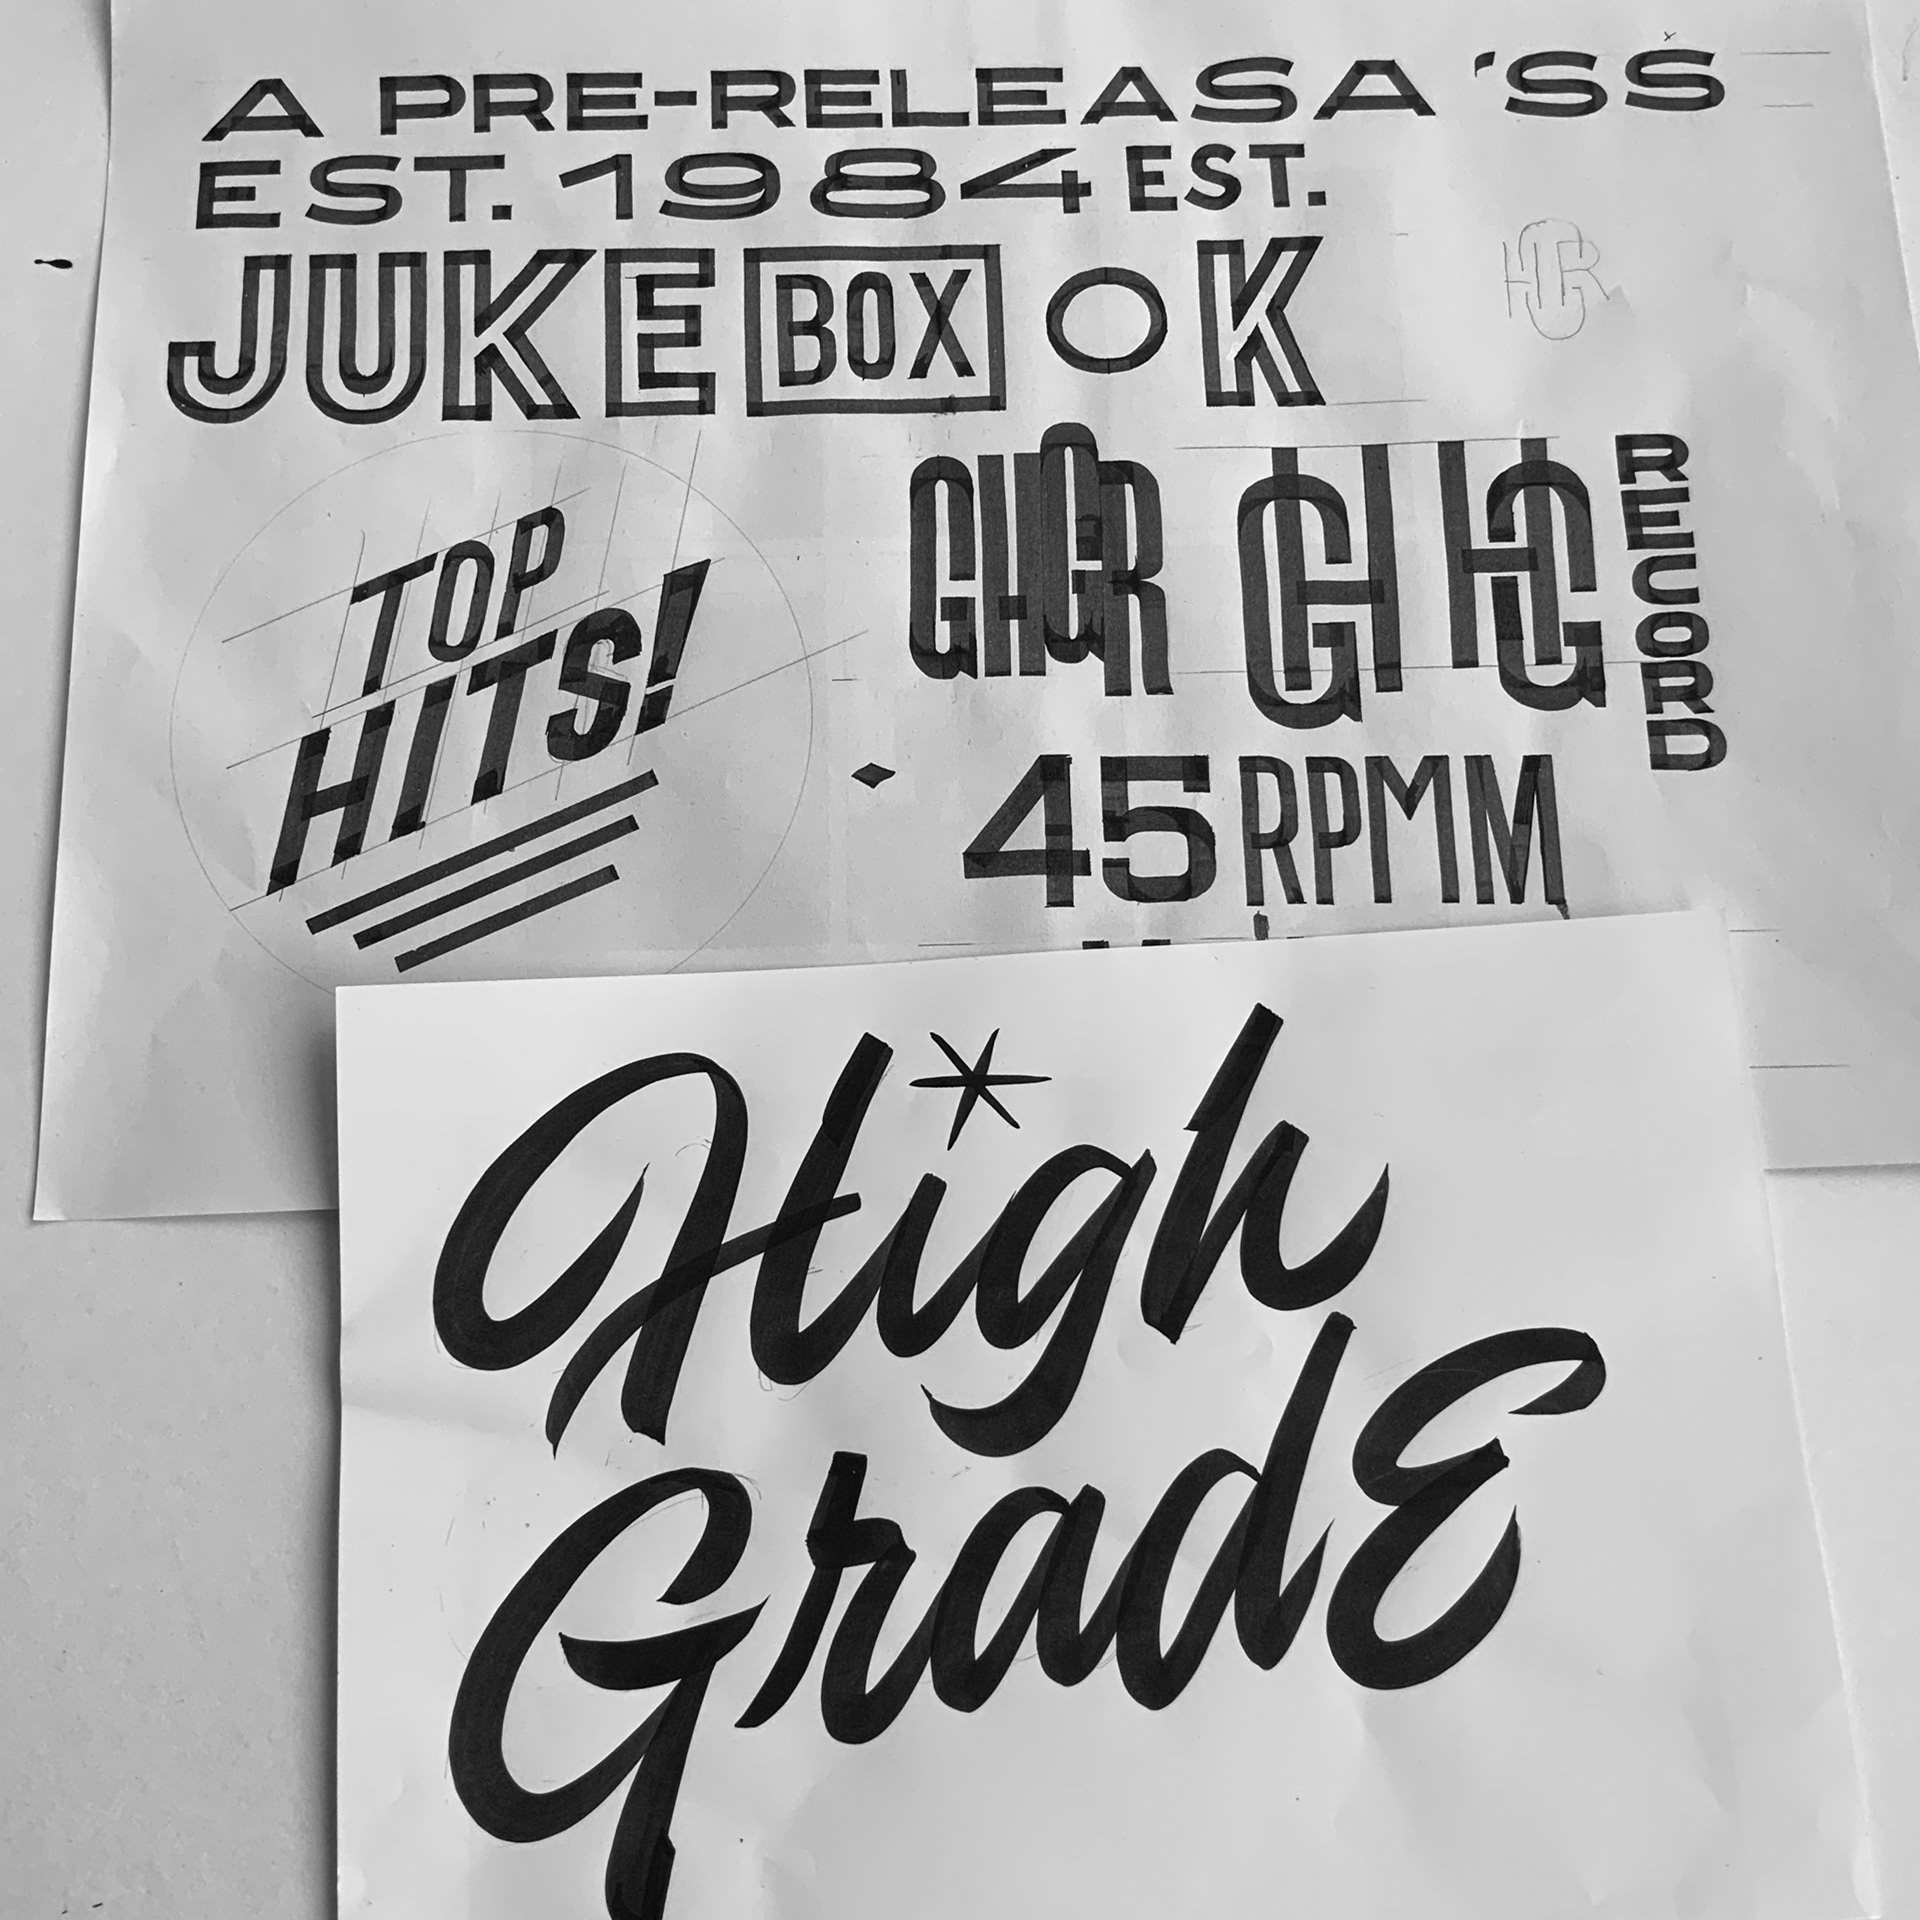 A PRE-RELEASA 'SS
EST. 1984 EST.
JUKE BOX O K
TOP
HITS!
GH GR GH HG
RECORD
45 RPMM
High
GradE